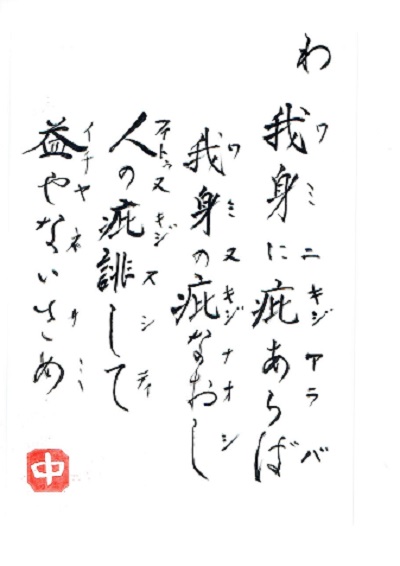 わ
我身に疵あらば
ワミニキジアラバ
我身の疵なおし
ワミヌキジナオシ
人の疵誹して
フィトゥヌキジスシティ
益やないさめ
イチヤネサミ
中